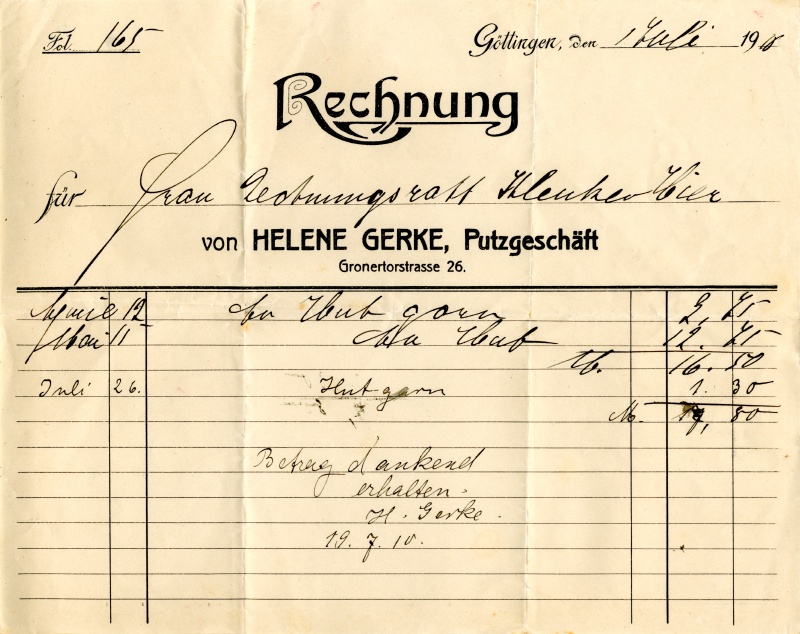 Fol. 165
Göttingen, den 1 Juli 1910
Rechnung
für Frau Rechnungsrath Klenker Hier
von HELENE GERKE, Putzgeschäft
Gronertorstrasse 26.
April 12 Hut garn 75
Mai 11 Hut 12. 75
M. 16. 50
Juli 26. Hut garn 1. 30
M. 17, 80
Betrag dankend
erhalten.
H. Gerke.
19. 7. 10.